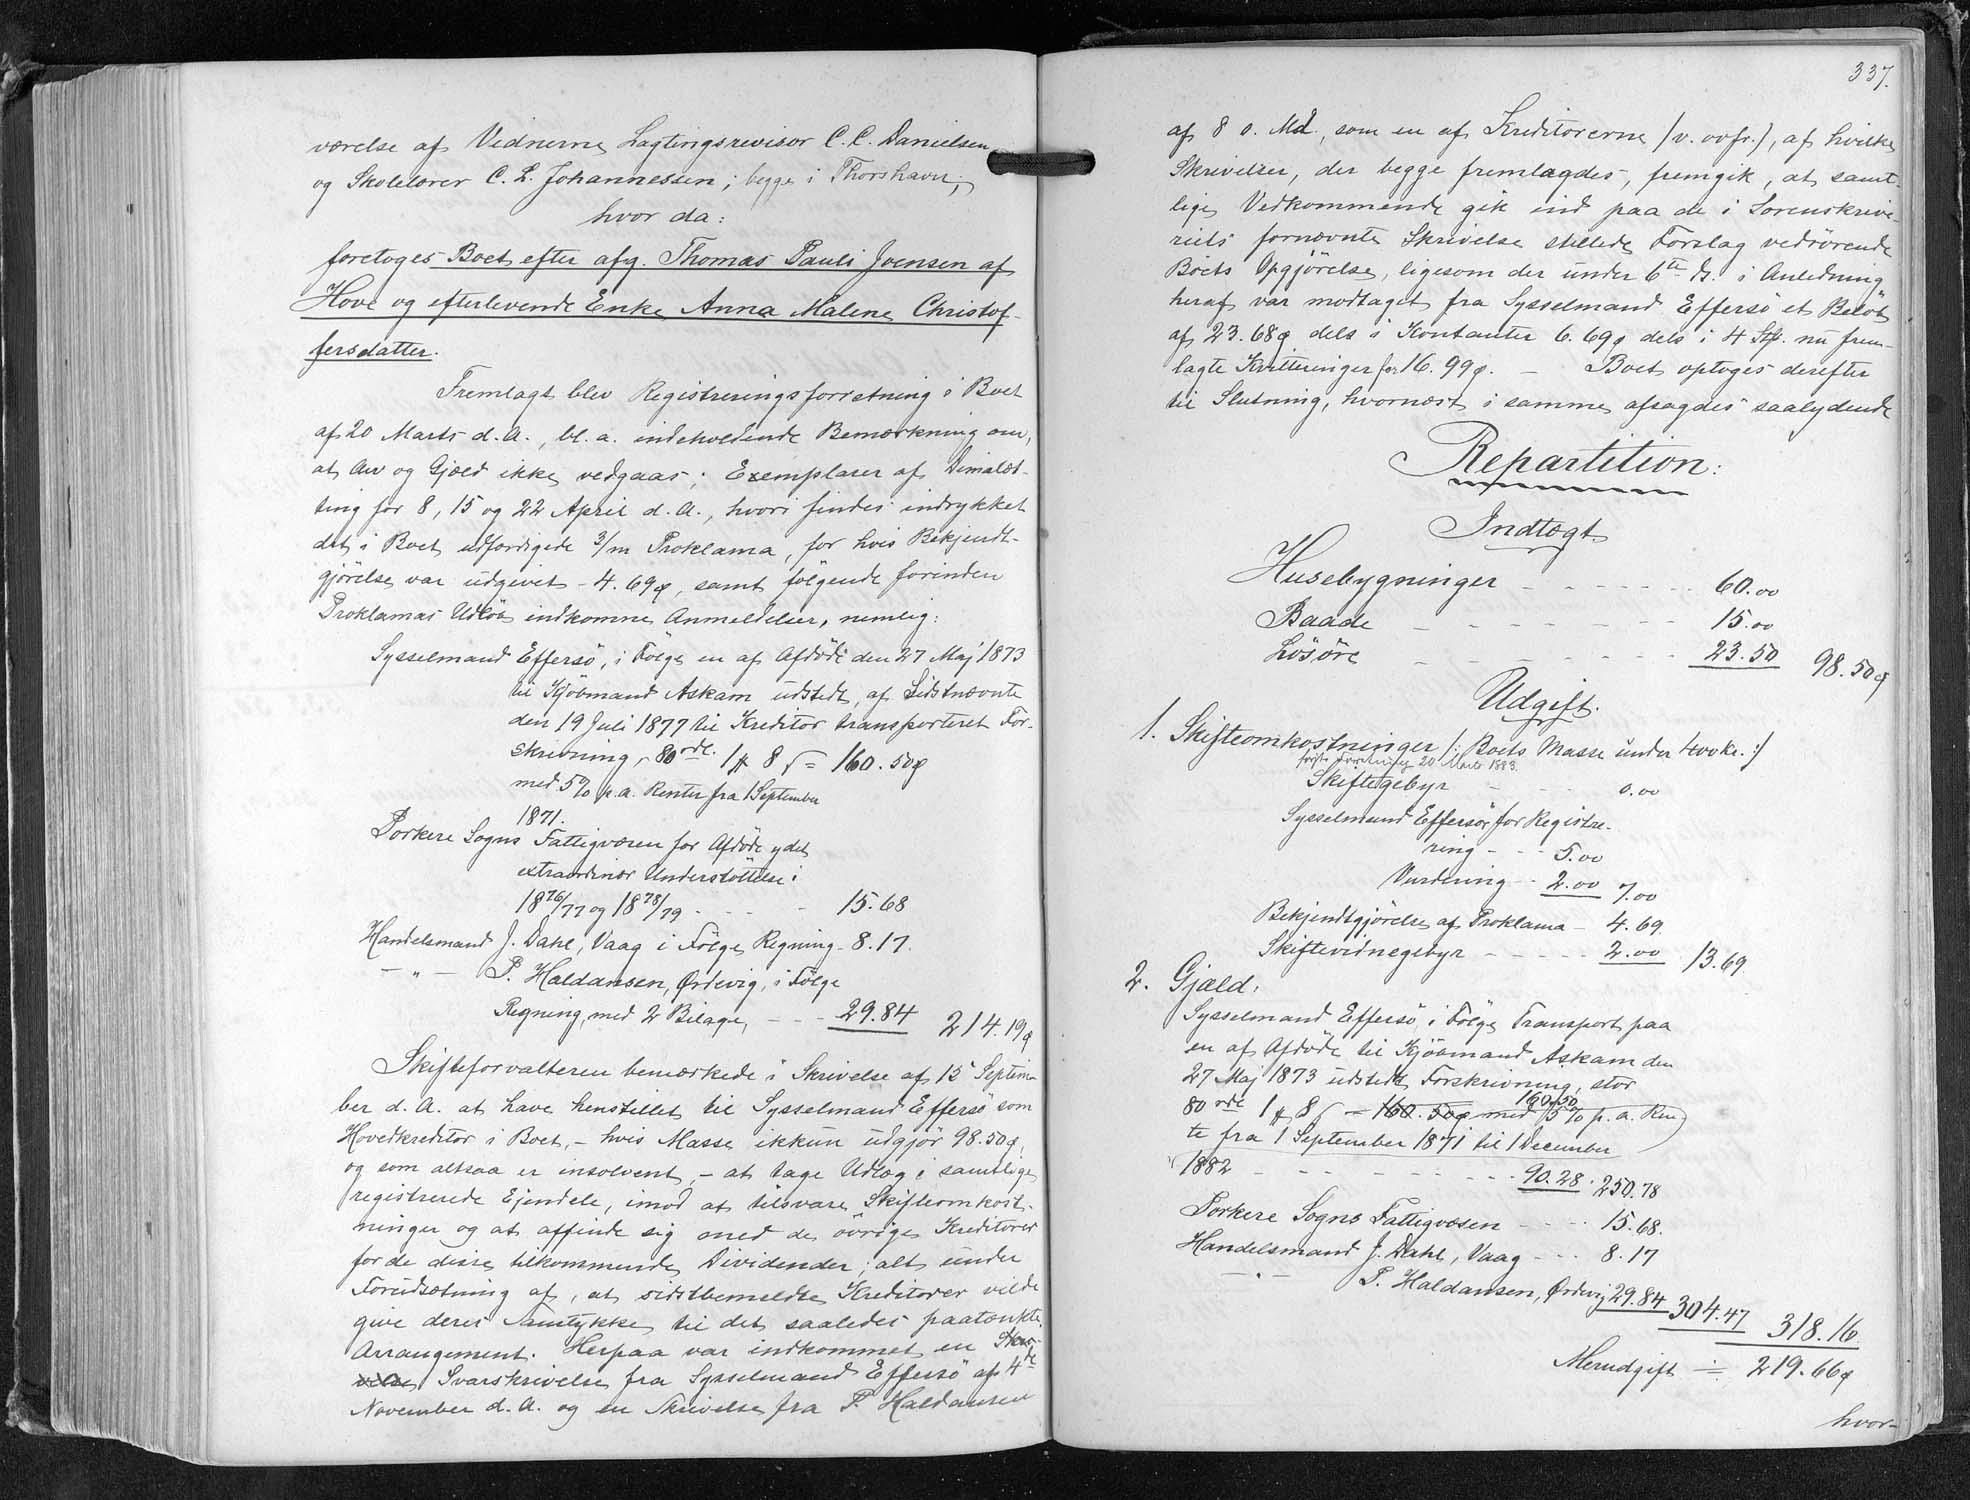 værelse af Vidnerne Lagtingsrevisor C. C. Danielsen
og Skolelærer C. L. Johannessen; begge i Thorshavn;
hvor da:
foretoges Boet efter afg. Thomas Pauli Joensen af
Hove og efterlevende Enke Anna Malene Christof-
fersdatter.
Fremlagt blev Registreringsforretning i Boet
af 20 Marts d. A., bl. a. indeholdende Bemærkning om,
at Arv og Gjæld ikke vedgaas; Exemplarer af Dimalæt-
ting for 8, 15 og 22 April d. A., hvori findes indrykket
det i Boet udfærdigede 3/m Proklama, for hvis Bekjendt-
gjørelse var udgivet - 4. 69ø, samt følgende forinden
Proklamas Udløb indkomne Anmeldelser, nemlig:
Sysselmand Effersö, i Følge en af Afdøde den 27 Maj 1873
til Kjöbmand Askam udstedt, af Sidstnævnte
den 19 Juli 1877 til Kreditor transporteret For-
skrivning, 80 rdl. 1 ₰ 8 ſ = 160. 50ø
med 5% p. a. Renter fra 1 September
1871.
Porkere Sogns Fattigvæsen for Afdøde ydet
extraordinær Understöttelse i
1876/77 og 1878/79 - - - - 15. 68
Handelsmand J. Dahl, Vaag i Følge Regning - 8. 17.
— „ — P. Haldansen, Ørdevig, i Følge
Regning, med 2 Bilage, - - - 29. 84 214. 19ø
Skifteforvalteren bemærkede i Skrivelse af 15 Septem-
ber d. A. at have henstillet til Sysselmand Effersö som
Hovedkreditor i Boet, - hvis Masse ikkun udgjør 98. 50ø,
og som altsaa er insolvent, - at tage Udlæg i samtlige
registrerede Ejendele, imod at tilsvare Skifteomkost-
ninger og at affinde sig med de øvrige Kreditorer
for de disse tilkommende Dividender; alt under
Forudsætning af, at sidstbemeldte Kreditorer vilde
give deres Samtykke til det saaledes paatænkte
Arrangement. Herpaa var indkommet en Skri-
velse Svarskrivelse fra Sysselmand Effersö af 4de
November d. A. og en Skrivelse fra P. Haldansen
337.
af 8 s. Md., som en af Kreditorerne /v. ovfr./, af hvilke
Skrivelser, der begge fremlagdes, fremgik, at samt-
lige Vedkommende gik ind paa de i Sorenskrive-
riets fornævnte Skrivelse stillede Forslag vedrørende
Boets Opgjörelse, ligesom der under 6te ds. i Anledning
heraf var modtaget fra Sysselmand Effersö et Beløb
af 23. 68ø dels i Kontanter 6. 69ø dels i 4 Stk. nu frem-
lagte Kvitteringer for 16. 99ø. — Boet optoges derefter
til Slutning, hvornæst i samme afsagdes saalydende
Repartition:
Indtægt
Husebygninger - - - - - - 60. 00
Baade - - - - - - - 15. 00
Lösöre - - - - - - - 23. 50 98. 50ø
Udgift.
1. Skifteomkostninger /: Boets Masse under 400 kr. :/
første Forretning 20 Marts 1883.
Skiftegebyr - - - 0. 00
Sysselmand Effersö, for Registre-
ring - - - 5. 00
Vurdering - - 2. 00 7. 00
Bekjendtgjörelse af Proklama - 4. 69
Skiftevidnegebyr - - - - - 2. 00 13. 69
2. Gjæld:
Sysselmand Effersö, i Følge Transport paa
en af Afdøde til Kjöbmand Askam den
27 Maj 1873 udstedt Forskrivning, stor
160.50
80 rdl 1 ₰ 8 ſ = 160. 50ø med 5% p. a. Ren-
te fra 1 September 1871 til 1 December
1882 - - - - - - - 90. 28 . 250. 78
Porkere Sogns Fattigvæsen - - - - 15. 68.
Handelsmand J. Dahl, Vaag - - - 8. 17
— „ — P. Haldansen, Ørdevig 29. 84 304. 47 318. 16
Merudgift ÷ 219. 66ø
hvor-